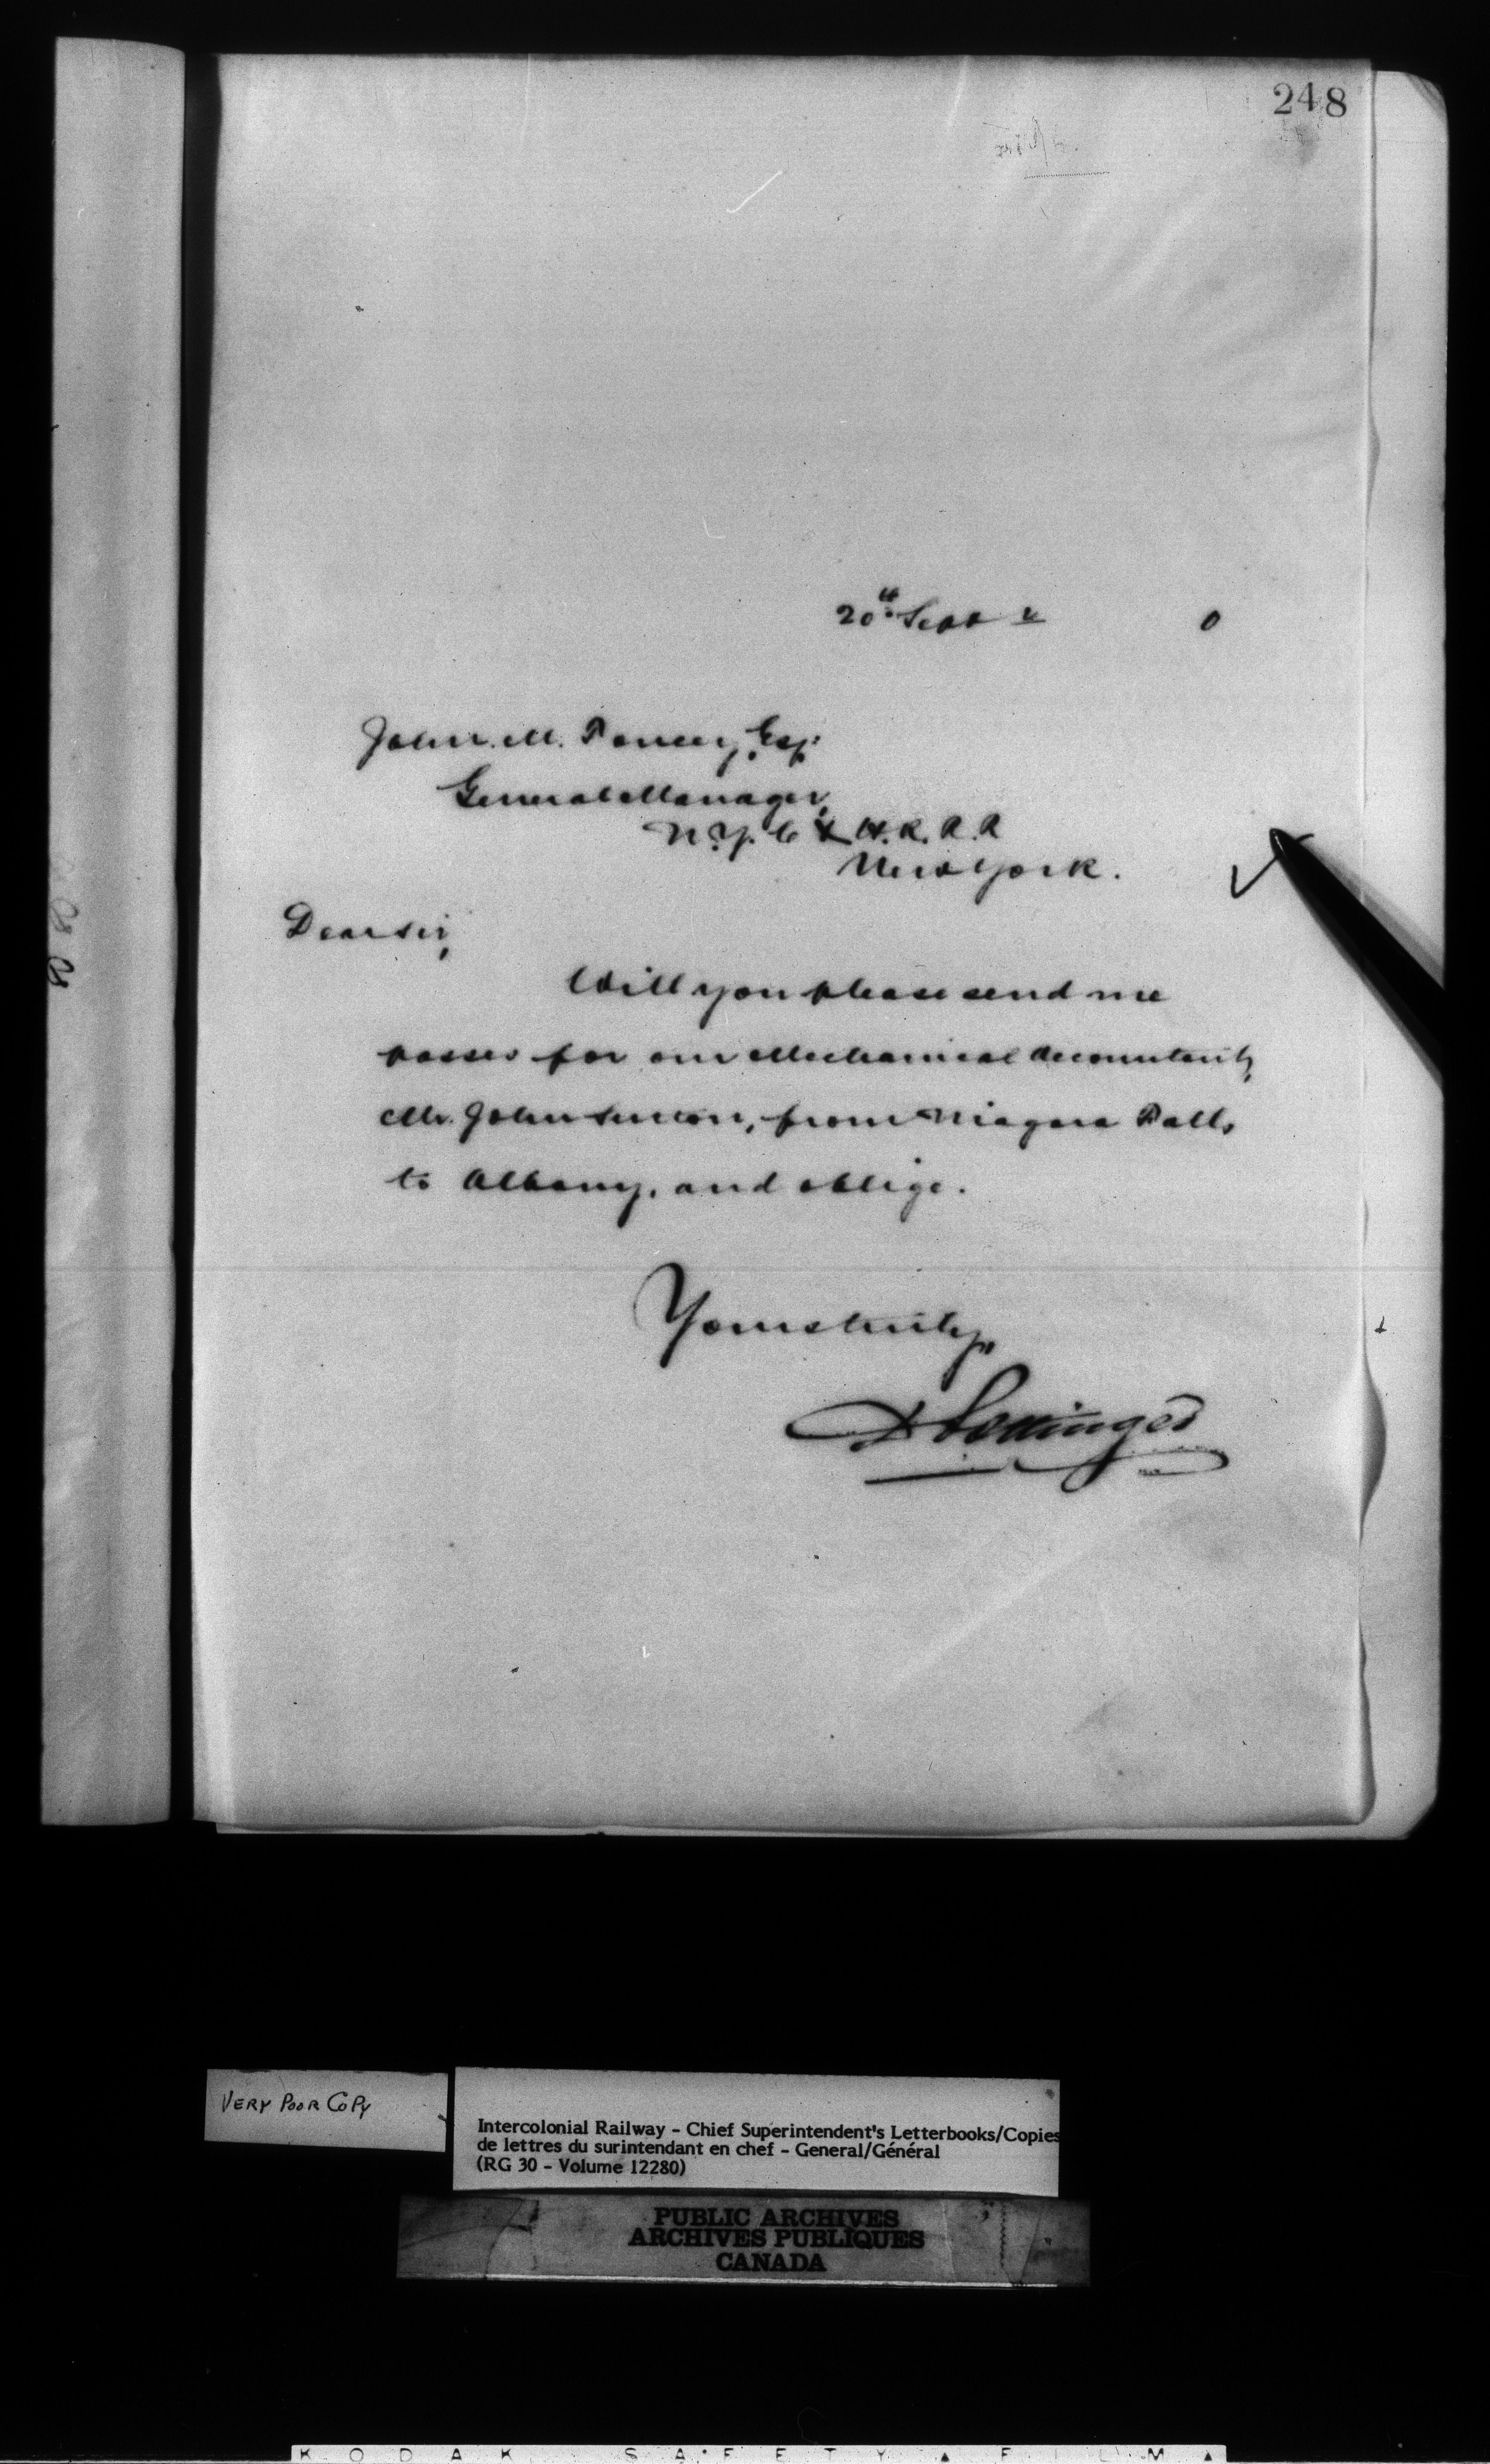 248
20th Sept r 0
John. M. Toucey, Esq.
General Manager,
N.Y. C & H. R. R. R
New York.
Dear sir,
Will you please send me
passes for our Mechanical Accountant,
Mr. John from Niagara Falls
to Albany, and oblige.
Yours truly,
D Pottinger
VERY POOR COPY
Intercolonial Railway - Chief Superintendent's Letterbooks/Copies
de lettres du surintendant en chef - General/Général
(RG 30 - Volume 12280)
PUBLIC ARCHIVES
ARCHIVES PUBLIQUES
CANADA
KODAK SAFETY FILM